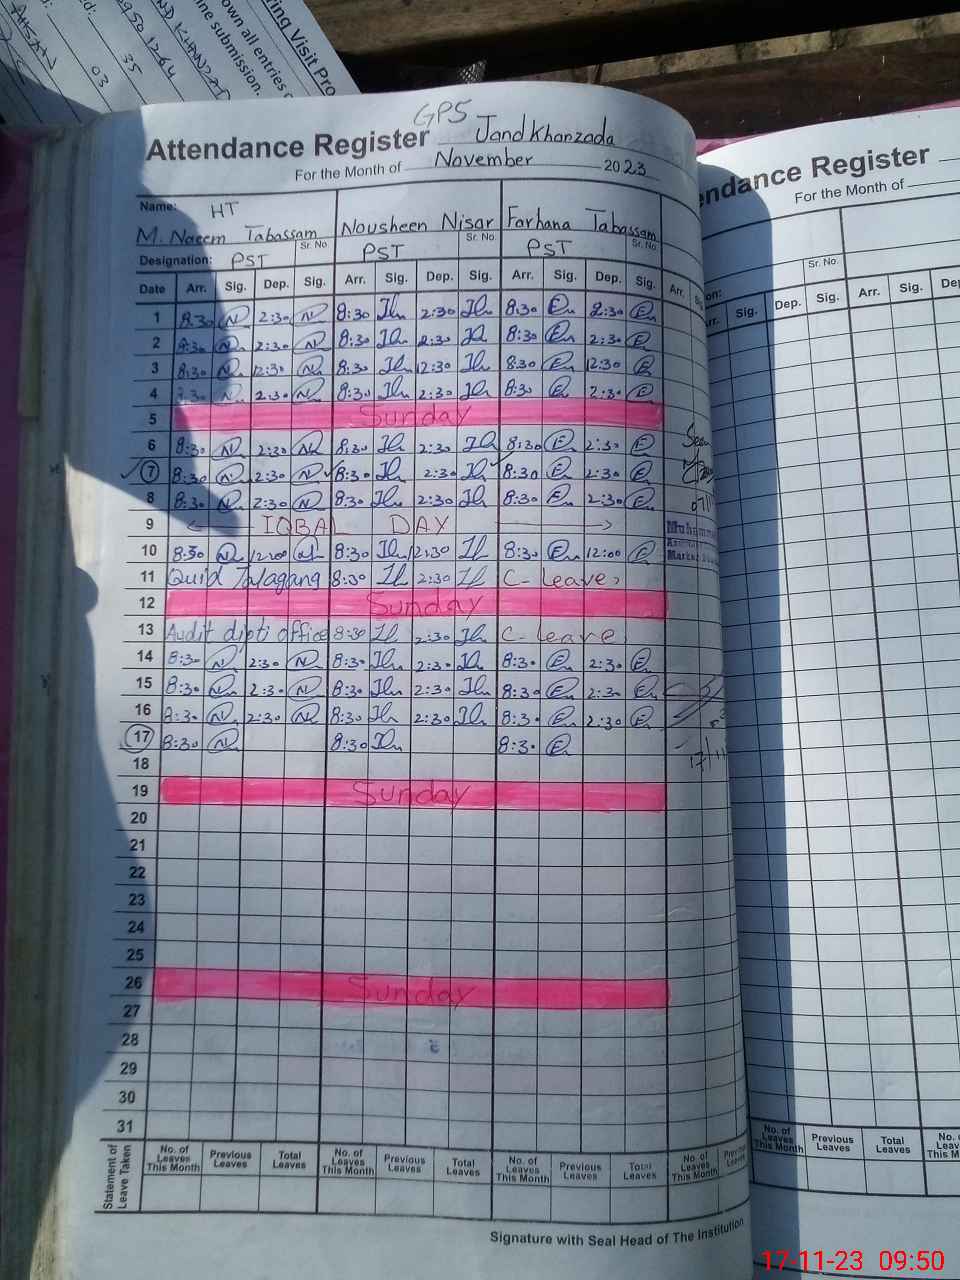 ring Visit Pro
own all entries
ine submission.
35
03
GPS
Attendance Register Jand Khanzada
For the Month of November 2023
Name: HT
M. Naeem Tabassam Nousheen Nisar Farhana Tabassam
Sr. No. Sr. No. Sr. No.
Designation: PST PST PST
Date Arr. Sig. Dep. Sig. Arr. Sig. Dep. Sig. Arr. Sig. Dep. Sig. Arr.
1 8:30 N 2:30 N 8:30 2:30 8:30 E 2:30 E
2 8:30 N 2:30 N 8:30 2:30 8:30 E 2:30 E
3 8:30 N 12:30 N 8:30 12:30 8:30 E 12:30 E
4 8:30 N 2:30 N 8:30 2:30 8:30 E 2:30 E
5 Sunday
6 8:30 N 2:30 N 8:30 2:30 8:30 E 2:30 E
7 8:30 N 2:30 N 8:30 2:30 8:30 E 2:30 E
8 8:30 N 2:30 N 8:30 2:30 8:30 E 2:30 E
9 IQBAL DAY
10 8:30 N 12:00 N 8:30 12:30 8:30 E 12:00 E
11 Quid Talagang 8:30 2:30 C-Leave
12 Sunday
13 Audit dipti office 8:30 2:30 C-leave
14 8:30 N 2:30 N 8:30 2:30 8:30 E 2:30 E
15 8:30 N 2:30 N 8:30 2:30 8:30 E 2:30 E
16 8:30 N 2:30 N 8:30 2:30 8:30 E 2:30 E
17 8:30 N 8:30 8:30 E
17/11
18
19 Sunday
20
21
22
23
24
25
26 Sunday
27
28
29
30
31
Statement of Leave Taken
No. of Leaves This Month Previous Leaves Total Leaves No. of Leaves This Month Previous Leaves Total Leaves No. of Leaves This Month Previous Leaves Total Leaves No. of Leaves This Month
Signature with Seal Head of The Institution
endance Register
For the Month of
Sr. No.
on:
Arr. Sig. Dep. Sig. Arr. Sig. Dep
No. of Leaves This Month Previous Leaves Total Leaves
17-11-23 09:50